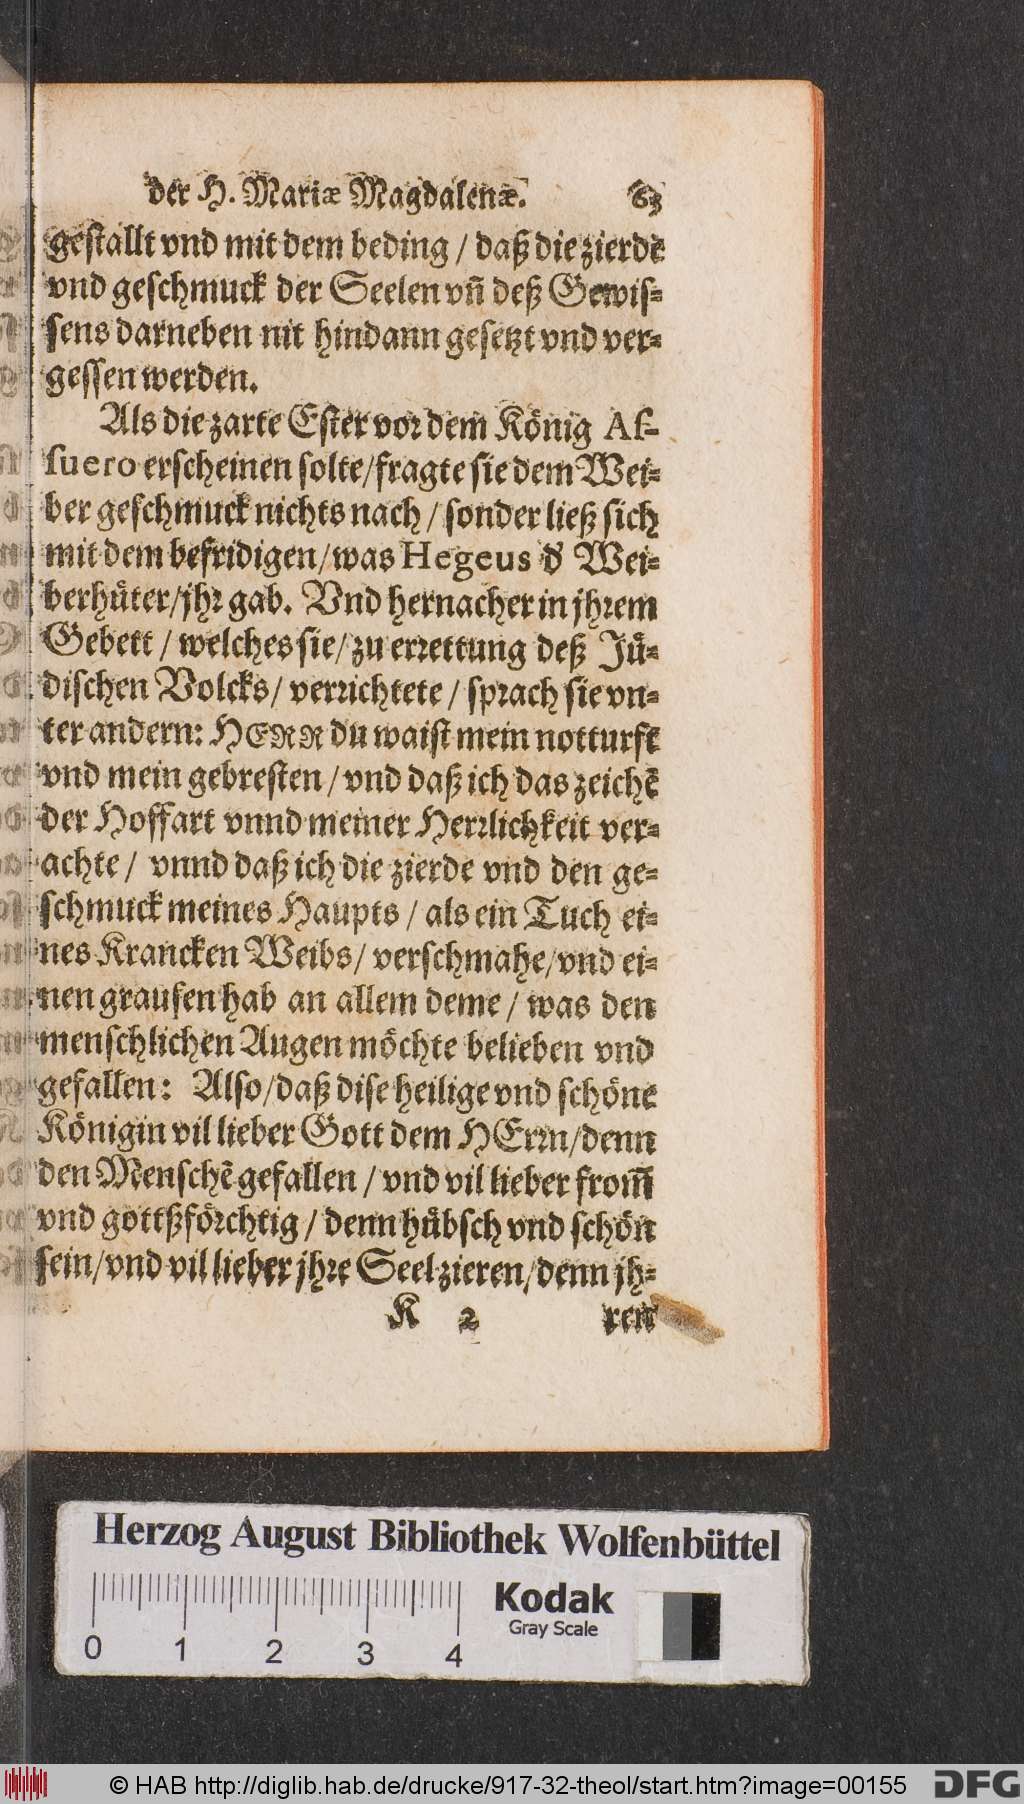 der H. Mariæ Magdalenæ. 63
gestallt vnd mit dem beding / daß die zierde
vnd geschmuck der Seelen vñ deß Gewis-
sens darneben nit hindann gesetzt vnd ver-
gessen werden.
Als die zarte Ester vor dem König As-
suero erscheinen solte/fragte sie dem Wei-
ber geschmuck nichts nach / sonder ließ sich
mit dem befridigen/was Hegeus d' Wei-
berhüter/jhr gab. Vnd hernacher in jhrem
Gebett / welches sie/ zu errettung deß Jü-
dischen Volcks/ verrichtete / sprach sie vn-
ter andern: HERR du waist mein notturft
vnd mein gebresten / vnd daß ich das zeichẽ
der Hoffart vnnd meiner Herrlichkeit ver-
achte / vnnd daß ich die zierde vnd den ge-
schmuck meines Haupts / als ein Tuch ei-
nes Krancken Weibs/ verschmahe/vnd ei-
nen grausen hab an allem deme / was den
menschlichen Augen möchte belieben vnd
gefallen: Also/daß dise heilige vnd schöne
Königin vil lieber Gott dem HErrn/denn
den Menschẽ gefallen / vnd vil lieber from̃
vnd gottßförchtig / denn hübsch vnd schön
sein/vnd vil lieber jhre Seel zieren/denn jh-
K 2 ren
Herzog August Bibliothek Wolfenbüttel
Kodak
Gray Scale
0 1 2 3 4
© HAB http://diglib.hab.de/drucke/917-32-theol/start.htm?image=00155 DFG